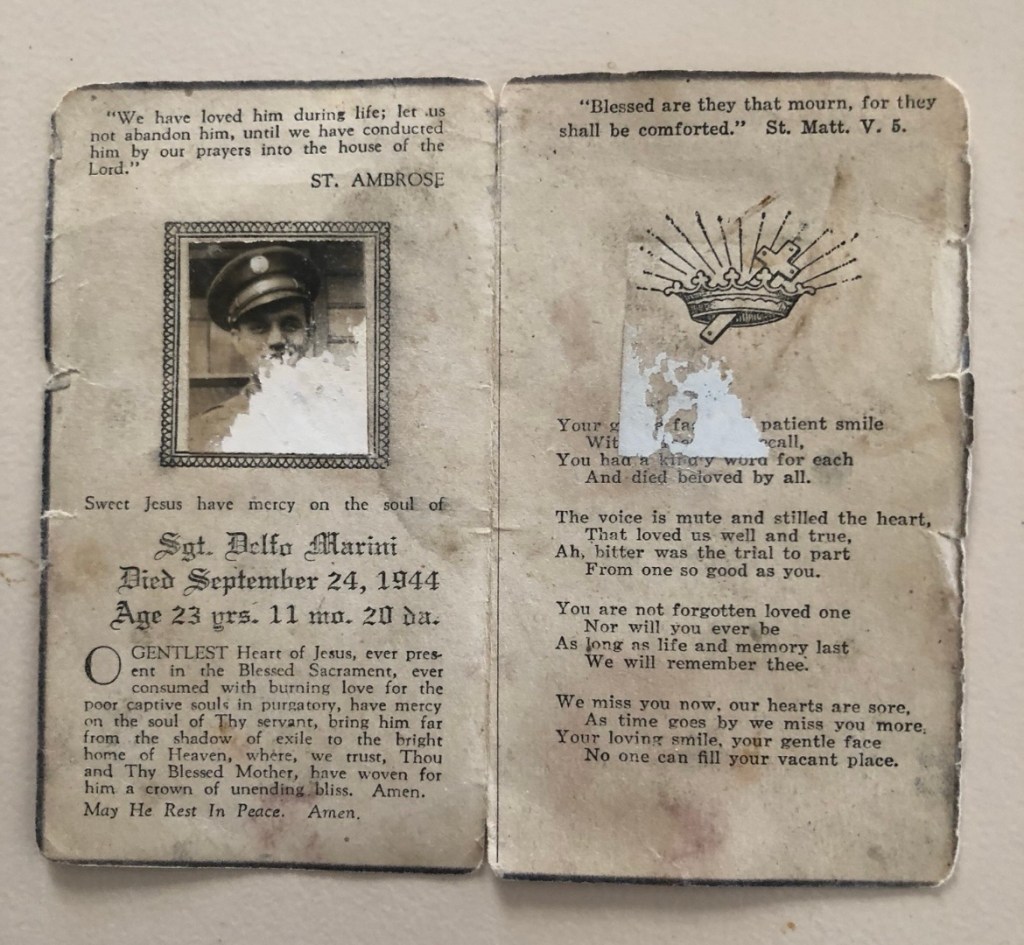 "We have loved him during life; let us
not abandon him, until we have conducted
him by our prayers into the house of the
Lord."
ST. AMBROSE
Sweet Jesus have mercy on the soul of
Sgt. Delfo Marini
Died September 24, 1944
Age 23 yrs. 11 mo. 20 da.
O GENTLEST Heart of Jesus, ever pres-
ent in the Blessed Sacrament, ever
consumed with burning love for the
poor captive souls in purgatory, have mercy
on the soul of Thy servant, bring him far
from the shadow of exile to the bright
home of Heaven, where, we trust, Thou
and Thy Blessed Mother, have woven for
him a crown of unending bliss. Amen.
May He Rest In Peace. Amen.
"Blessed are they that mourn, for they
shall be comforted." St. Matt. V. 5.
Your patient smile
You had a kindly word for each
And died beloved by all.
The voice is mute and stilled the heart,
That loved us well and true,
Ah, bitter was the trial to part
From one so good as you.
You are not forgotten loved one
Nor will you ever be
As long as life and memory last
We will remember thee.
We miss you now, our hearts are sore,
As time goes by we miss you more,
Your loving smile, your gentle face
No one can fill your vacant place.